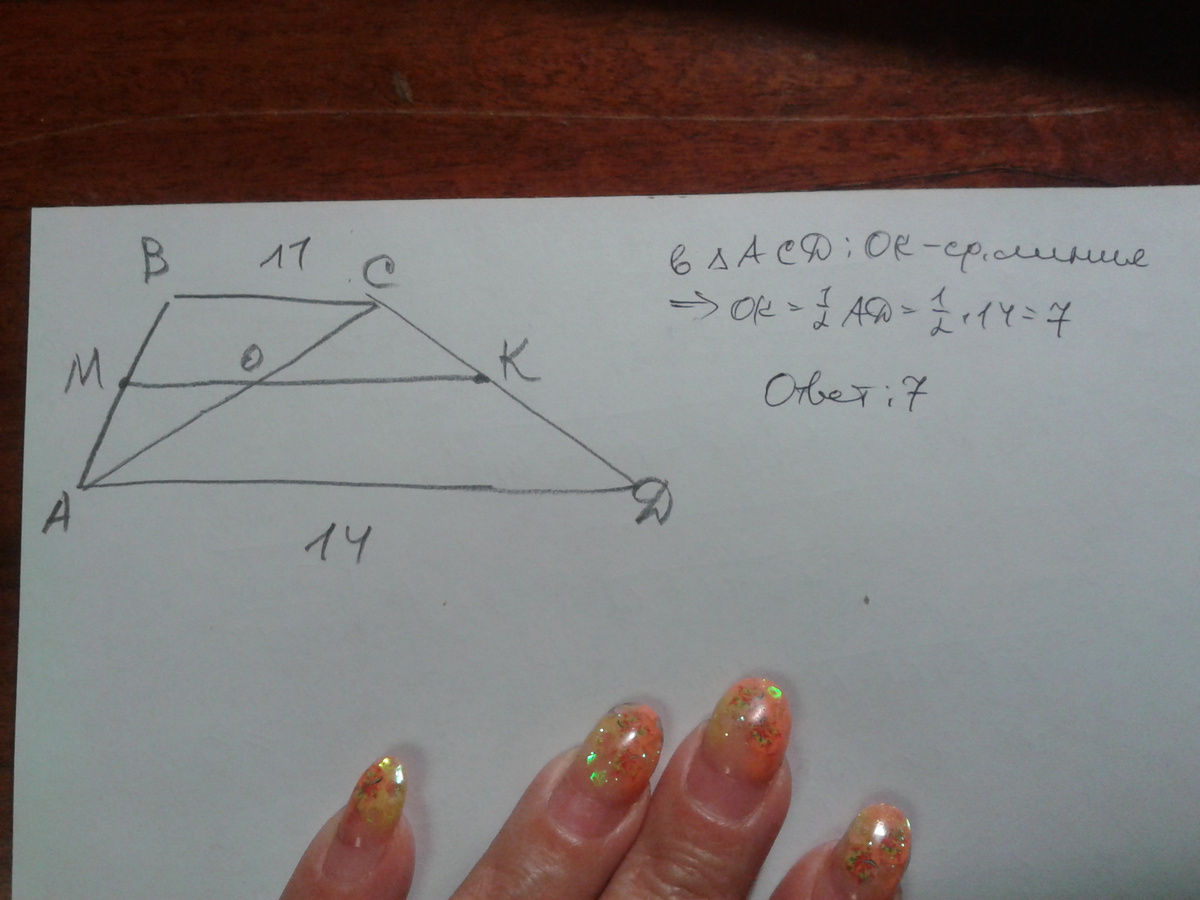 B 11 C
M O K
A D
14
в △ACD: OK - ср. линия
⇒ OK = 1/2 AD = 1/2 · 14 = 7
Ответ: 7